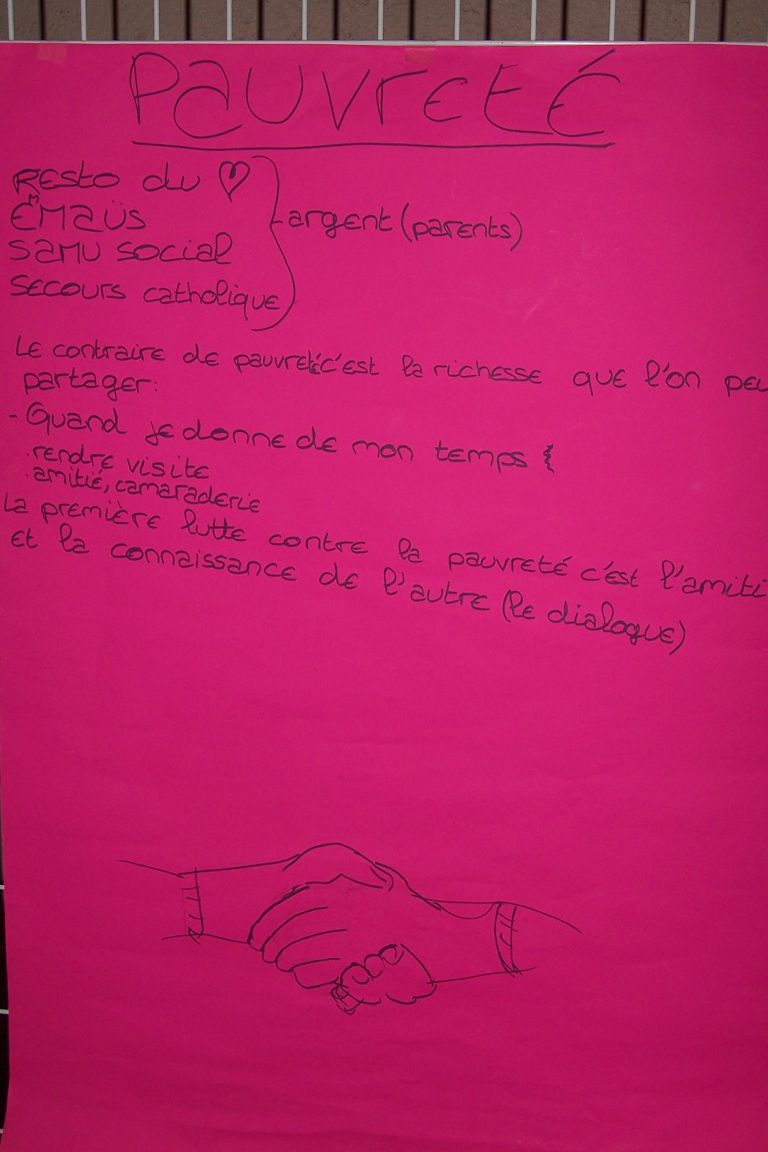 Pauvreté
Resto du ♡
Ëmaüs
Samu social
Secours catholique
argent (parents)
Le contraire de pauvreté c'est la richesse que l'on peu
partager:
- Quand je donne de mon temps
. rendre visite
. amitié, camaraderie
La première lutte contre la pauvreté c'est l'amiti
et la connaissance de l'autre (le dialogue)